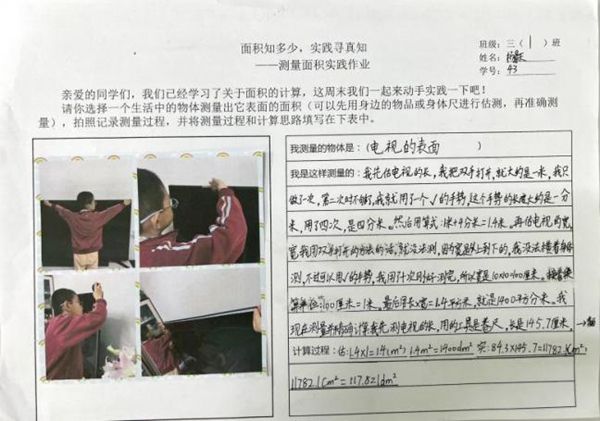 面积知多少，实践寻真知
——测量面积实践作业
班级：三（1）班
姓名：
学号：43
亲爱的同学们，我们已经学习了关于面积的计算，这周末我们一起来动手实践一下吧！
请你选择一个生活中的物体测量出它表面的面积（可以先用身边的物品或身体尺进行估测，再准确测
量），拍照记录测量过程，并将测量过程和计算思路填写在下表中。
我测量的物体是：（电视的表面）
我是这样测量的：我先估电视的长，我把双手打开，就大约是一米，我只
做了一次，第二次时不够了，我就用了一个√的手势，这个手势的长度大约是一分
米，用了四次，是四分米。然后用算式：1米+4分米=1.4米。再估电视的宽，
宽我用双手打开的方法的话，就没法测，因为宽是从上到下的，我没法接着
测，不过可以用√的手势，我用了十次刚好测完，所以宽是10×10=100厘米。接着
算单位：100厘米=1米。最后用长×宽=1.4平方米，就是1400平方分米。我
现在测量精确计算我先测电视的长，用的工具是卷尺，长是145.7厘米，
计算过程：估：1.4×1=1.4(m²) 1.4m²=1400dm² 实：84.3×145.7=11782.1(cm²)
11782.1cm²=117.821dm²